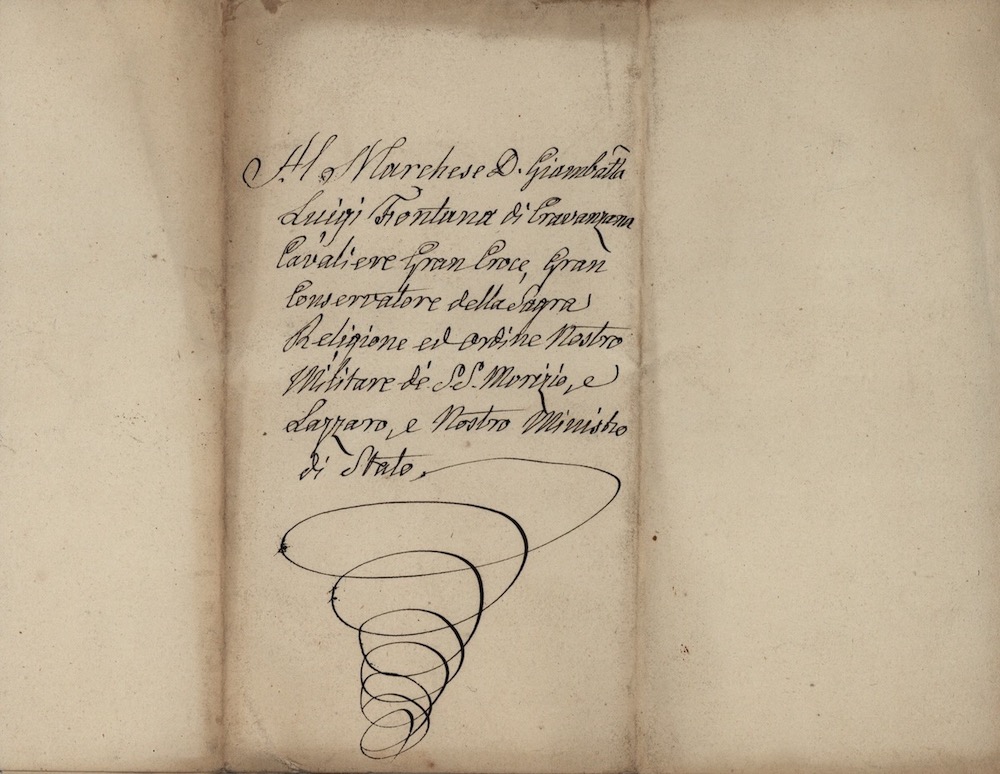 Al Marchese D. Giambatta
Luigi Fontana di Cravanzana
Cavaliere Gran Croce, Gran
Conservatore della Sagra
Religione ed ordine Nostro
Militare dè S.S. Morizio, e
Lazzaro, e Nostro Ministro
di Stato.